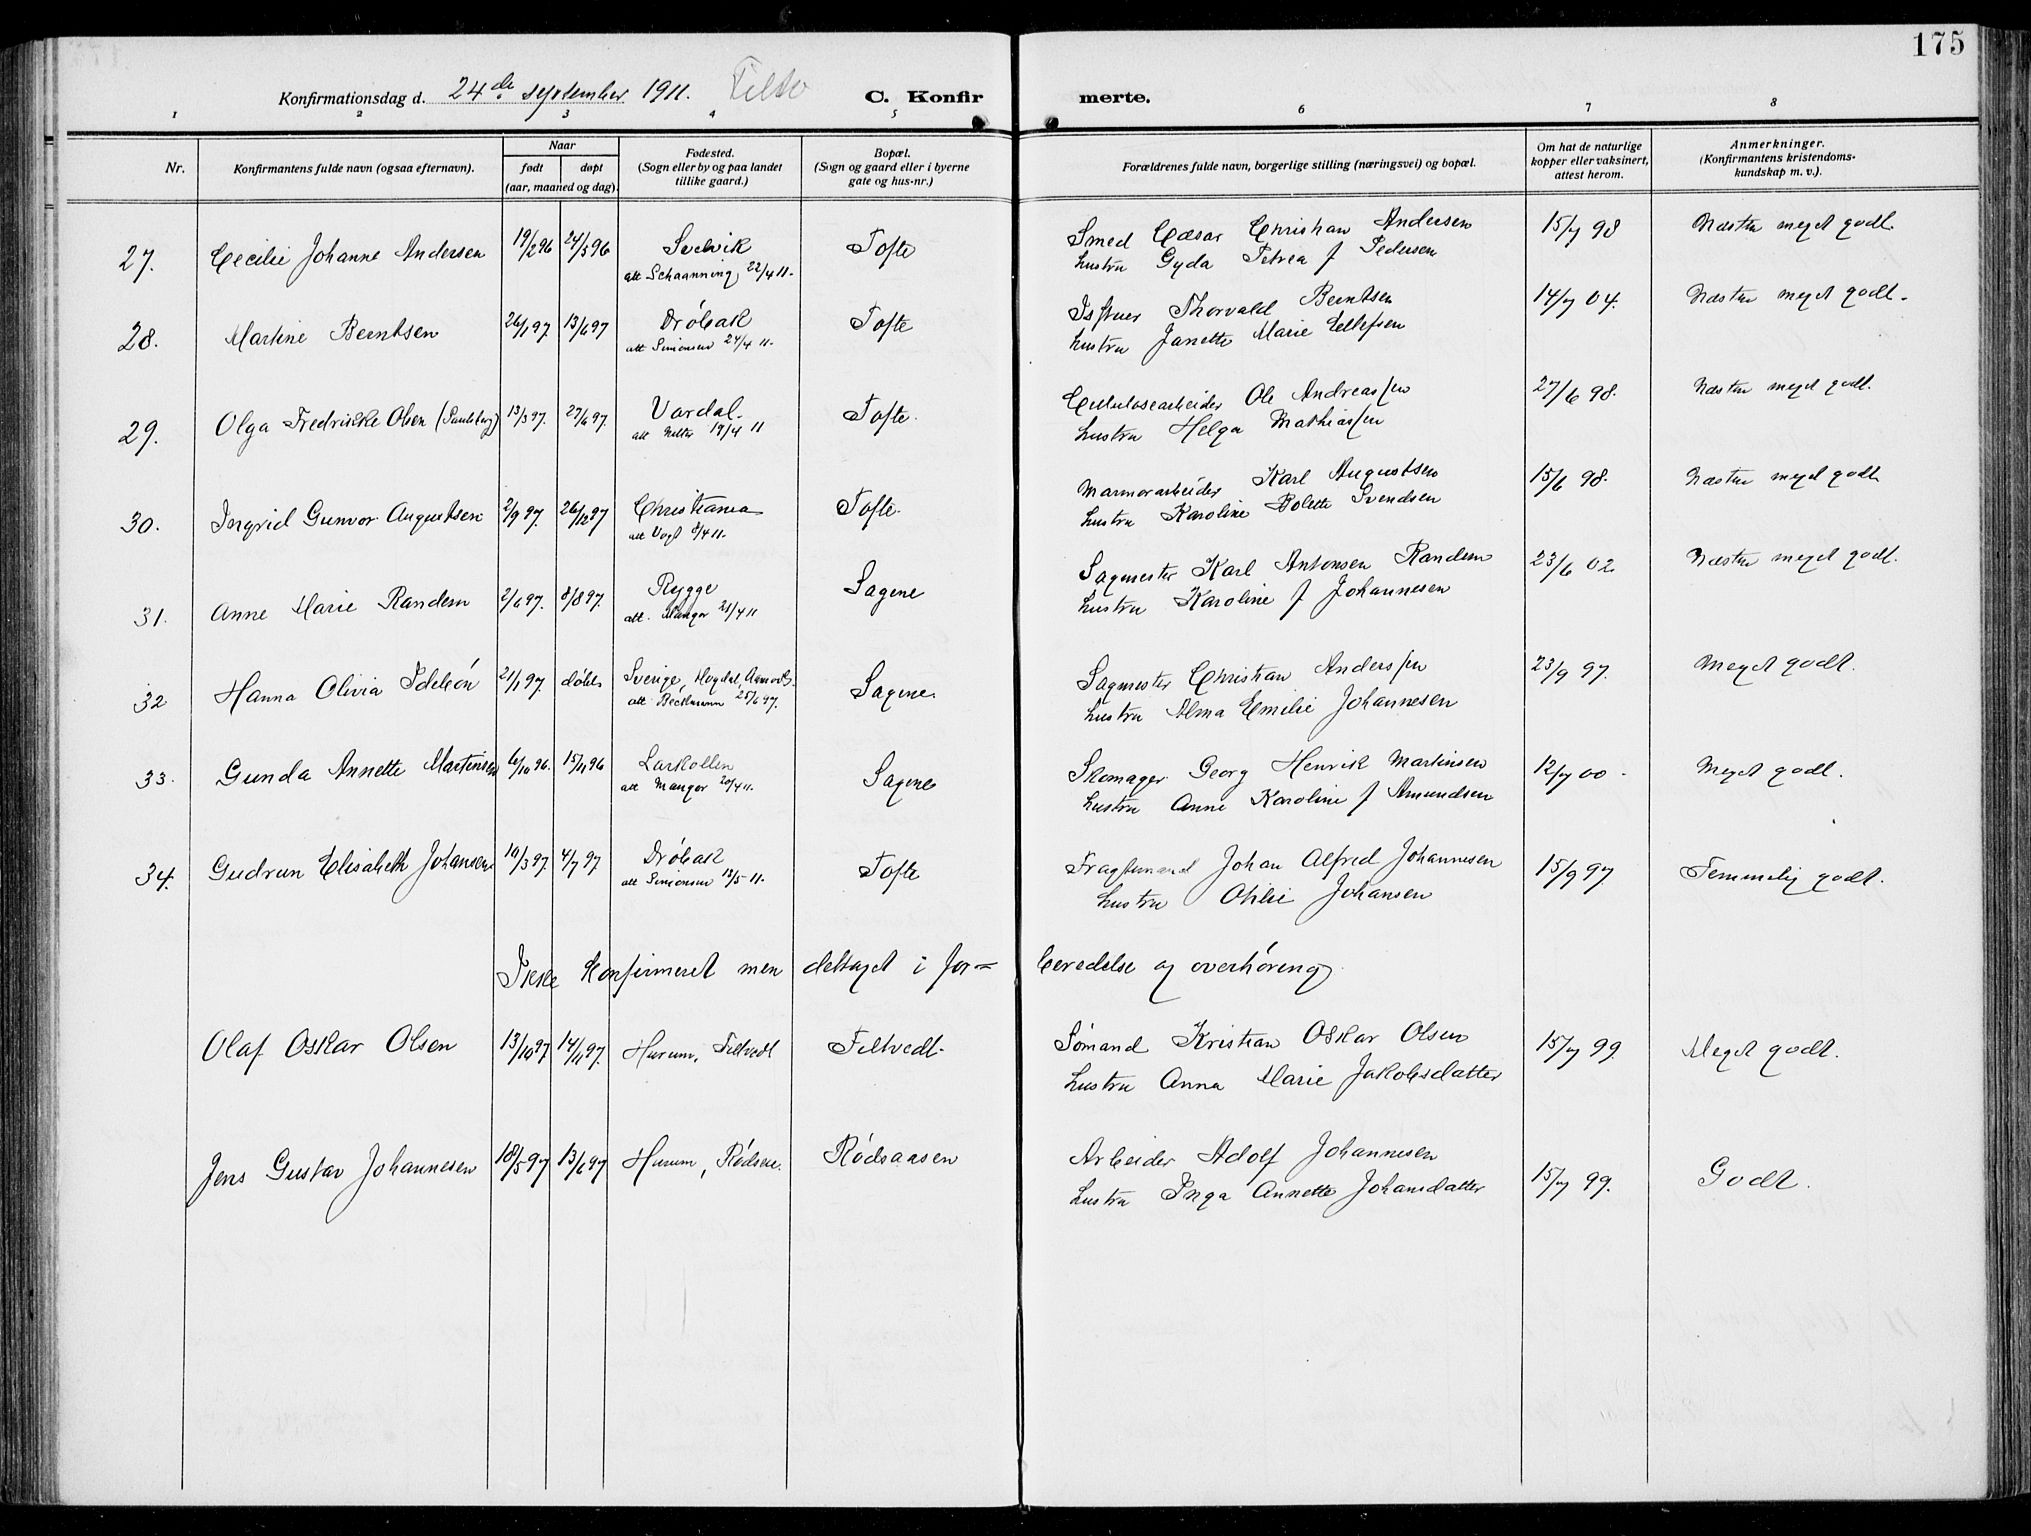 175
Konfirmationsdag d. 24de september 1911. Filtv
C. Konfirmerte.
1 2 3 4 5 6 7 8
Nr.
Konfirmantens fulde navn (ogsaa efternavn).
Naar
født døpt
(aar, maaned og dag).
Fødested.
(Sogn eller by og paa landet
tillike gaard.)
Bopæl.
(Sogn og gaard eller i byerne
gate og hus-nr.)
Forældrenes fulde navn, borgerlige stilling (næringsvei) og bopæl.
Om hat de naturlige
kopper eller vaksinert,
attest herom.
Anmerkninger.
(Konfirmantens kristendoms-
kundskap m. v.).
27. Cecilie Johanne Andersen 19/2 96 24/3 96 Svelvik Tofte Smed Cæsar Christian Andersen 15/7 98 Næsten meget godt.
att Schaanning 22/4 11. hustru Gyda Petrea f Pedersen
28. Martine Berntsen 26/1 97. 13/6 97 Drøbak Tofte Thorvald Berntsen 14/7 04. Næsten meget godt.
att Simonsen 24/4 11. hustru Janette Marie Ellefsen
29. Olga Fredrikke Olsen (Paulsberg) 13/3 97. 27/6 97. Vardal. Tofte. Cellulosearbeider Ole Andreassen 27/6 98. Næsten meget godt.
att 19/4 11 hustru Helga Mathiassen
30. Ingrid Gunvor Augustsen 2/9 97. 26/12 97 Christiania Tofte. Marmorarbeider Karl Augustsen 15/6 98. Næsten meget godt
att Vogt 8/4 11. hustru Karoline Bolette Svendsen
31. Anne Marie Randem 2/6 97. 8/8 97. Rygge Sagene Sagmester Karl Antonsen Randem 23/6 02 Næsten meget godt.
att. Mangor 21/4 11 hustru Karoline f Johannesen
32 Hanna Olivia Idelsøn 21/1 97. døbt Sverige, Hogdal, Sagene. Sagmester Christian Anderssen 23/9 97. Meget godt.
att Beckmann 25/6 97. hustru Alma Emilie Johannesen
33. Gunda Annette Martinsen 6/10 96. 15/11 96 Larkollen Sagene Skomager Georg Henrik Martinsen 12/7 00. Meget godt.
att Mangor 20/4 11. hustru Anne Karoline f Amundsen
34. Gudrun Elisabeth Johansen 10/3 97. 4/7 97 Drøbak Tofte Fragtemand Johan Alfred Johannesen 15/9 97 Temmelig godt.
att Simonsen 13/5 11. hustru Otilie Johansen
Ikke konfirmeret men deltaget i forberedelse og overhøring.
Olaf Oskar Olsen 13/10 97 14/11 97. Hurum, Filtvedt Filtvedt. Sømand Kristian Oskar Olsen 15/7 99 Meget godt.
hustru Anna Marie Jakobsdatter
Jens Gustav Johannesen 18/5 97 13/6 97 Hurum, Rødsaa. Rødsaasen Arbeider Adolf Johannesen 15/7 99. Godt.
hustru Inga Annette Johansdatter